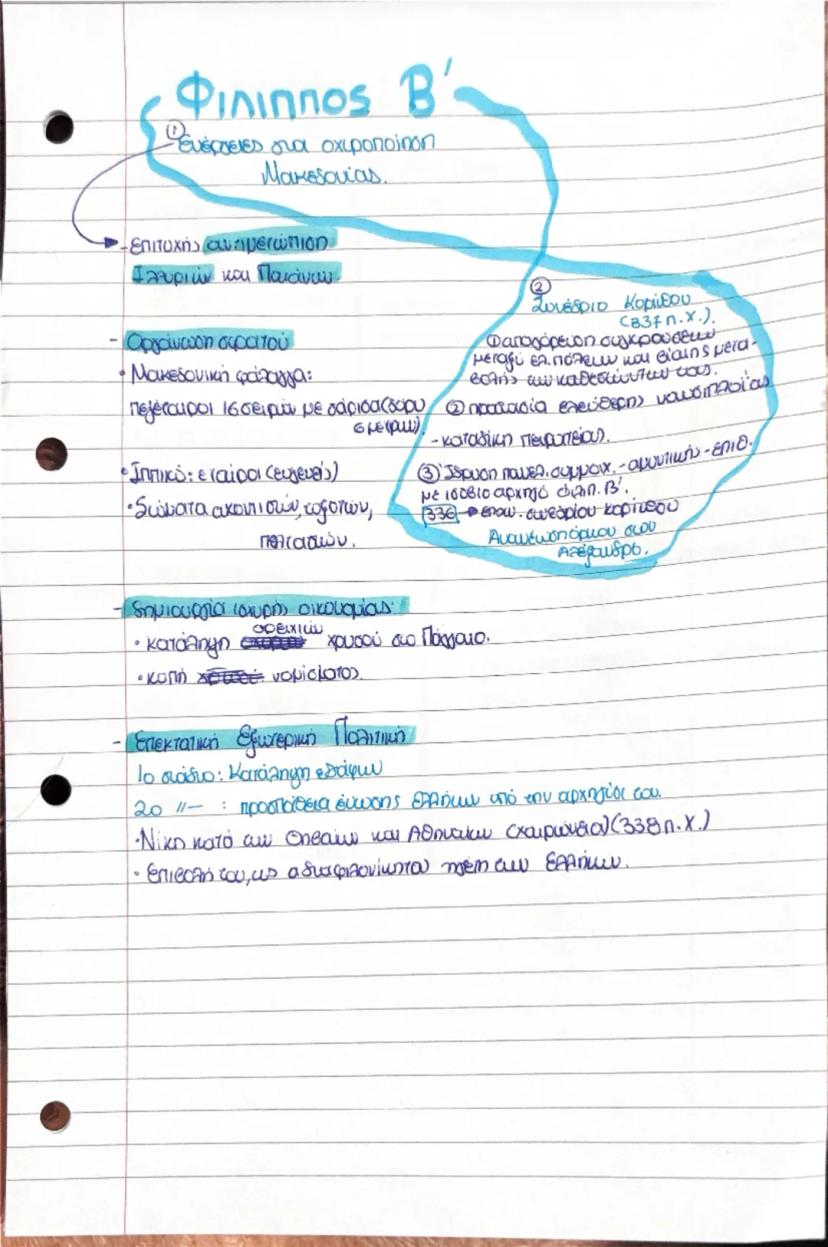 Φιλιππος Β'
① Ενέργειες για οχυροποίηση
Μακεδονίας.
- Επιτυχής αντιμετώπιση
Ιλλυριών και Παιόνων
- Οργάνωση στρατού
• Μακεδονική φάλαγγα:
πεζέταιροι 16 σειρών με σάρισα (δόρυ
6 μέτρων).
• Ιππικό: εταίροι (ευγενείς)
• Σώματα ακοντιστών, τοξοτών,
πελταστών.
- Δημιουργία ισχυρής οικονομίας:
• κατάληψη ορειχιών χρυσού στο Πάγγαιο.
• κοπή νομίσματος.
- Επεκτατική Εξωτερική Πολιτική
1ο στάδιο: Κατάληψη εδάφων
2ο //— : προσπάθεια ένωσης Ελλήνων υπό την αρχηγία του.
• Νίκη κατά των Θηβαίων και Αθηναίων (Χαιρώνεια) (338 π.Χ.)
• Επιβολή του, ως αδιαφιλονίκητου ηγέτη των Ελλήνων.
② Συνέδριο Κορίνθου
(337 π.Χ.).
① απαγόρευση συγκρούσεων
μεταξύ ελ. πόλεων και βίαιης μετα-
βολής των καθεστώτων τους.
② προστασία ελεύθερης ναυσιπλοΐας
- καταδίκη πειρατείας.
③ Ίδρυση πανελ. συμμαχ. - αμυντικής - επιθ.
με ισόβιο αρχηγό Φιλιπ. Β'.
336 → επαν. συνεδρίου Κορίνθου
Ανανέωση όρκου στον
Αλέξανδρο.